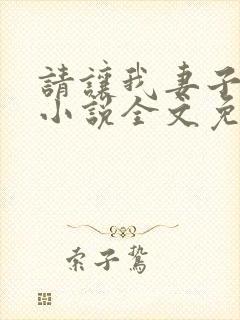 請讓我妻子
小說全文免
索子鷙